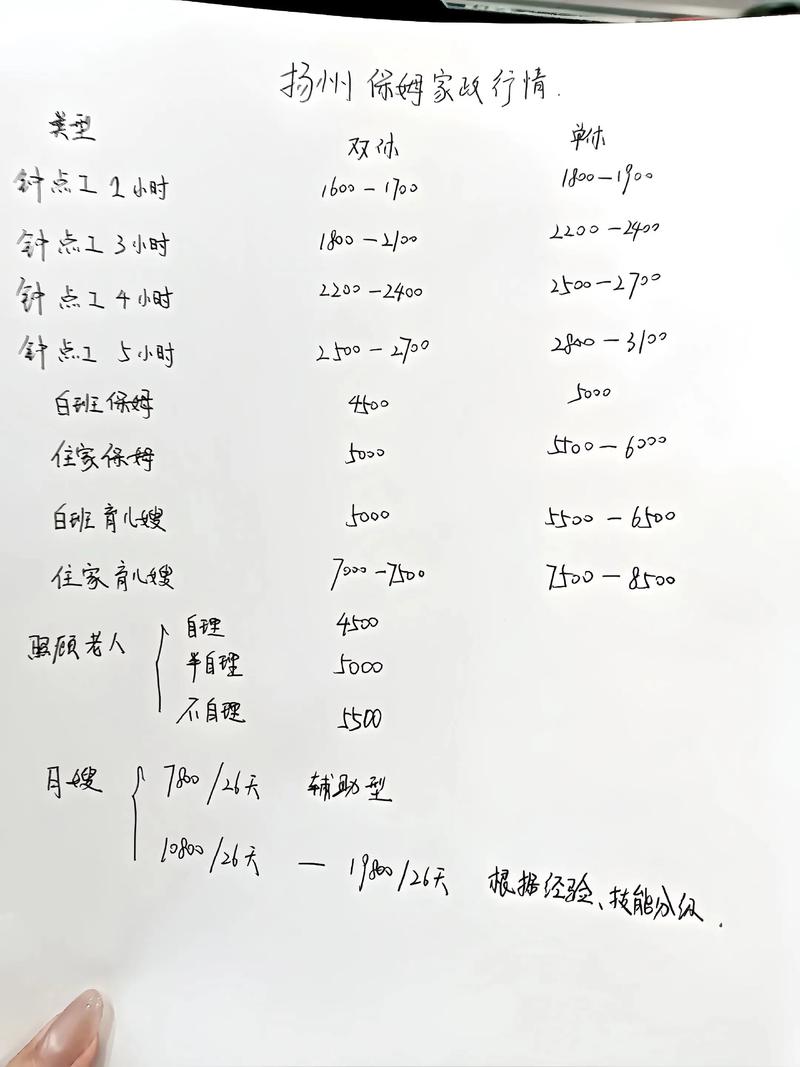 扬州保姆家政行情.
类型 双休 单休
钟点工 2小时 1600-1700 1800-1900
钟点工 3小时 1800-2100 2200-2400
钟点工 4小时 2200-2400 2500-2700
钟点工 5小时 2500-2700 2800-3100
白班保姆 4500 5000
住家保姆 5000 5500-6000
白班育儿嫂 5000 5500-6500
住家育儿嫂 7000-7500 7500-8500
照顾老人 自理 4500
半自理 5000
不自理 5500
月嫂 7800/26天 辅助型
10800/26天 — 19800/26天 根据经验、技能分级.